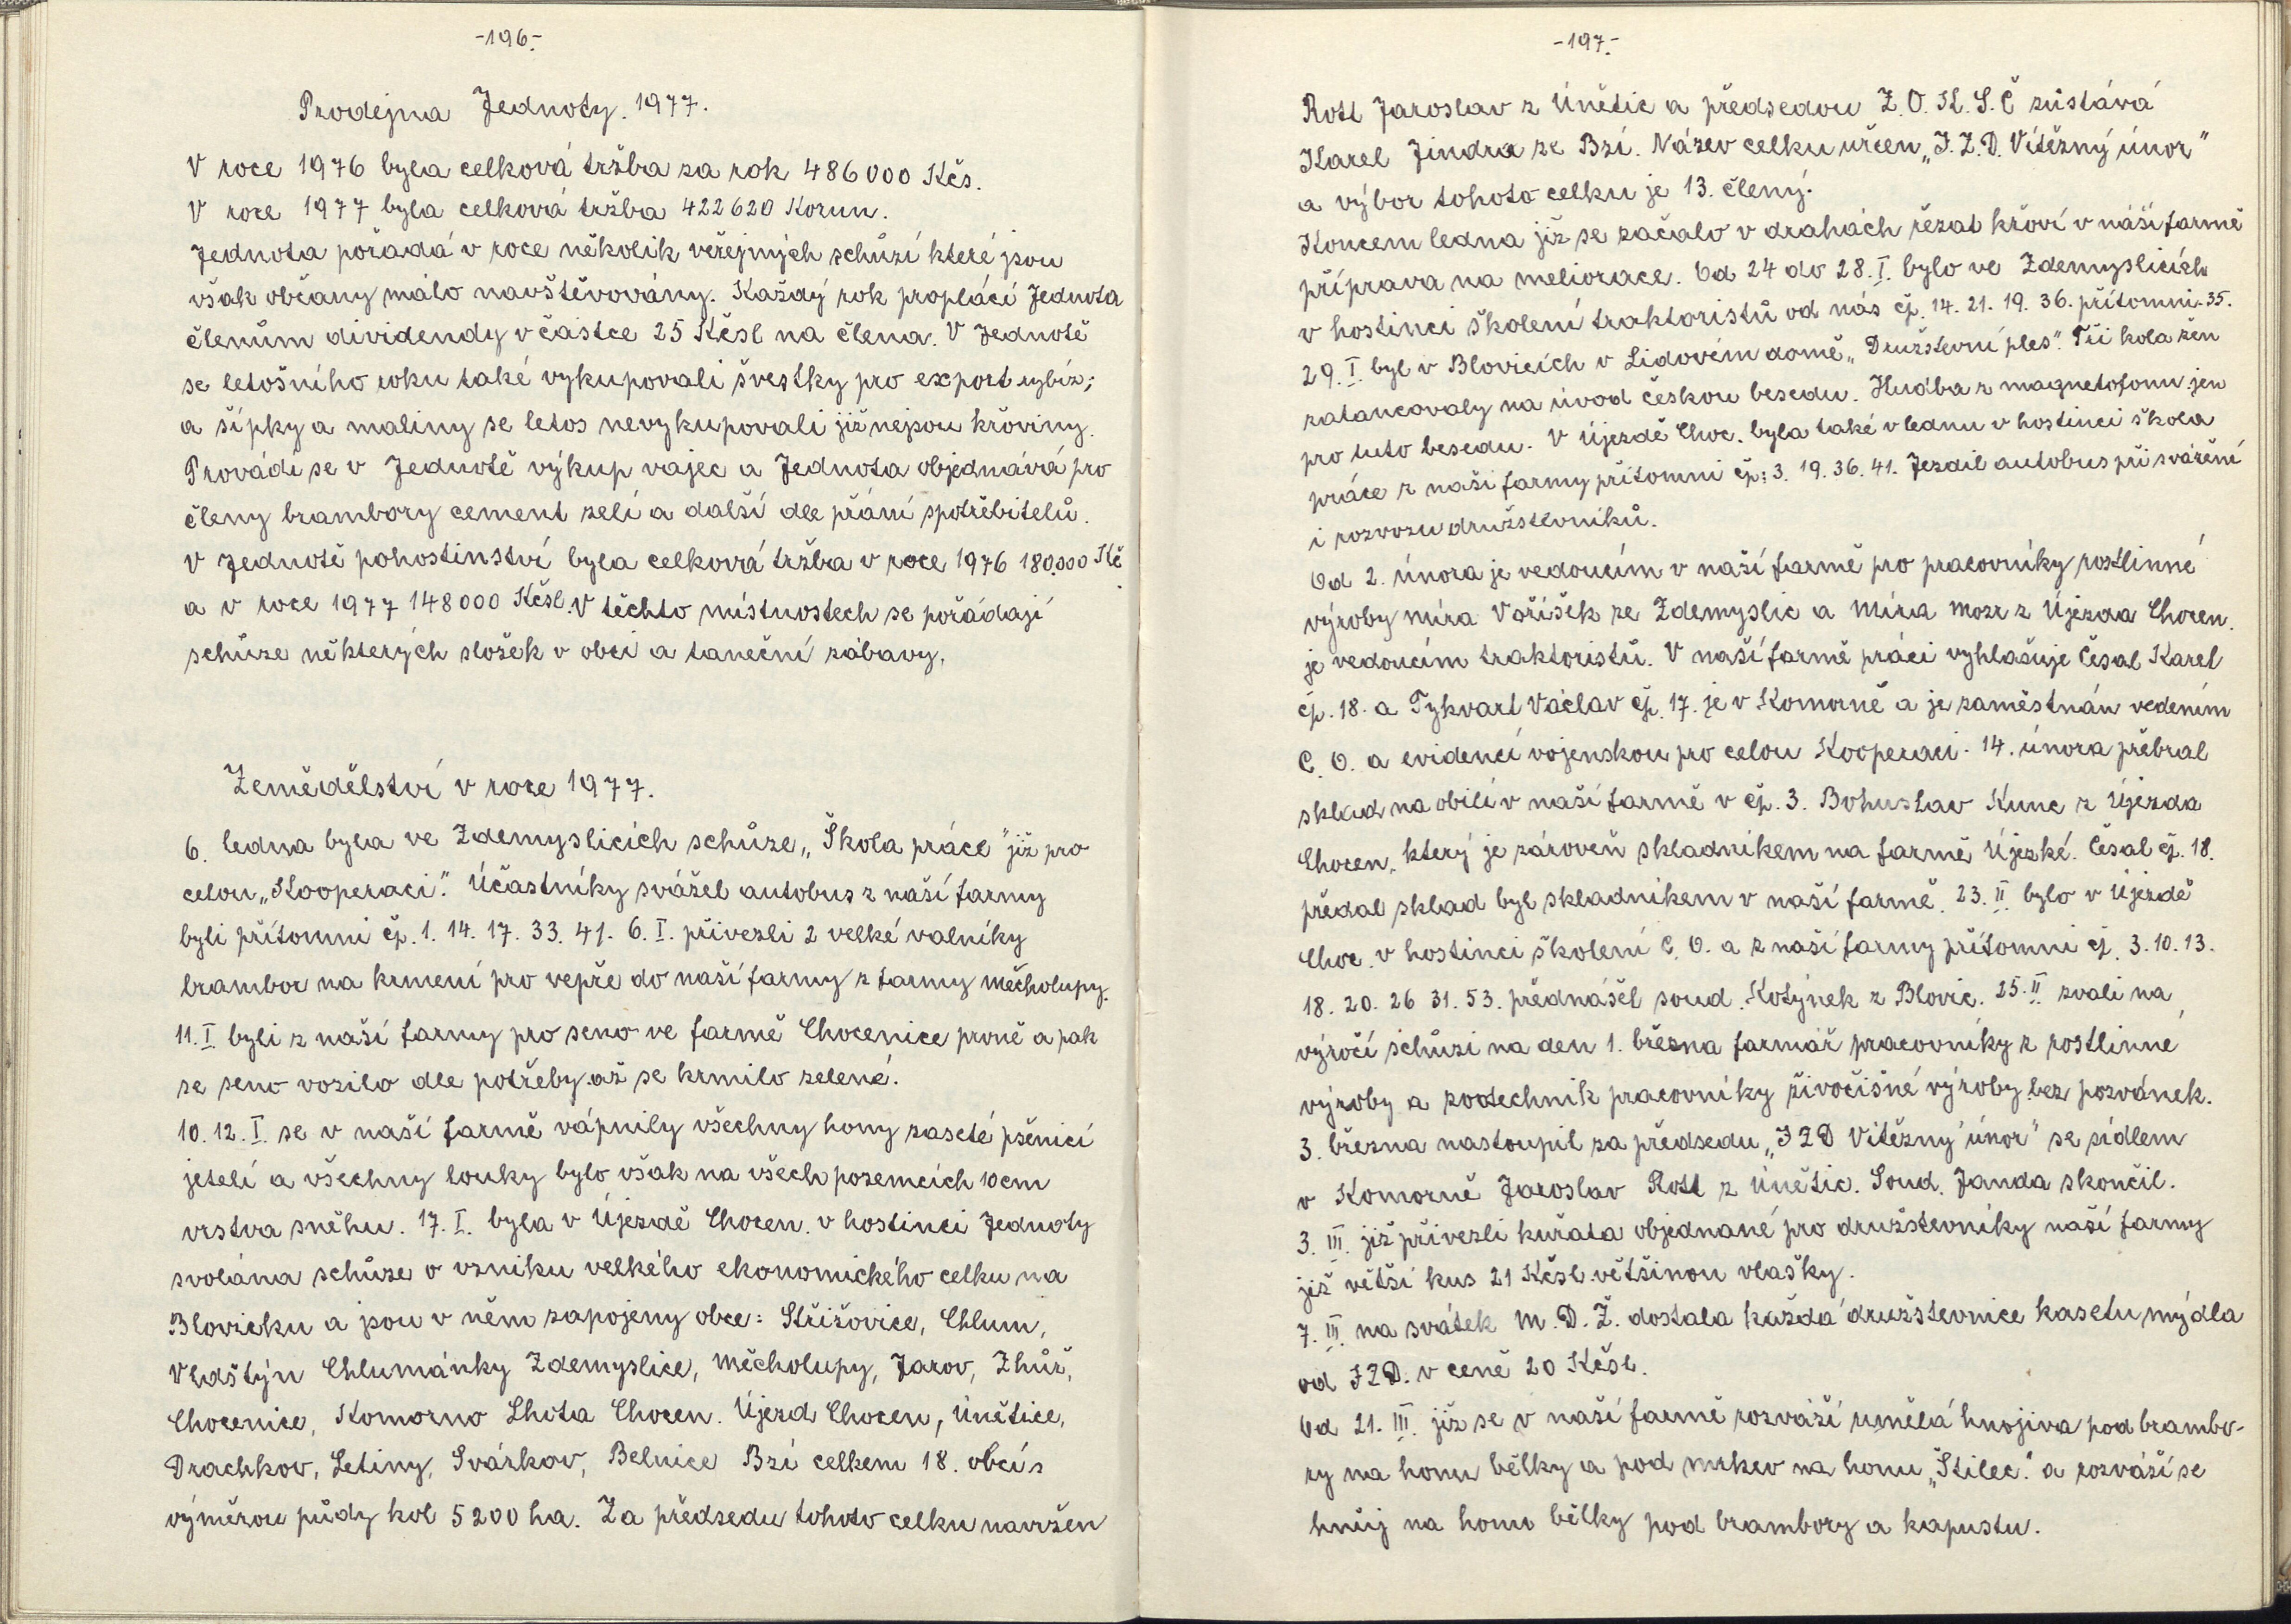 -196-
Prodejna Jednoty. 1977.
V roce 1976 byla celková tržba za rok 486000 Kčs.
V roce 1977 byla celková tržba 422620 Korun.
Jednota pořadá v roce několik veřejných schůzí které jsou
však občany málo navštěvovány. Každý rok proplácí Jednota
členům dividendy v částce 25 Kčsl na člena. V Jednotě
se letošního roku také vykupovali švestky pro export rybíz;
a šípky a maliny se letos nevykupovali již nejsou křoviny.
Provádí se v Jednotě výkup vajec a Jednota objednává pro
členy brambory cement zelí a další dle přání spotřebitelů.
V Jednotě pohostinství byla celková tržba v roce 1976 180.000 Kč
a v roce 1977 148000 Kčsl. V těchto místnostech se pořádají
schůze některých složek v obci a taneční zábavy.
Zemědělství v roce 1977.
6. ledna byla ve Zdemyslicích schůze „Škola práce" již pro
celou „Kooperaci". Účastníky svážel autobus z naší farmy
byli přítomni čp. 1. 14. 17. 33. 41. 6. I. přivezli 2 velké valníky
brambor na krmení pro vepře do naší farmy z farmy Měcholupy.
11. I byli z naší farmy pro seno ve farmě Chocenice prvně a pak
se seno vozilo dle potřeby až se krmilo zelené.
10. 12. I. se v naší farmě vápnily všechny hony zaseté pšenicí
jetelí a všechny louky bylo však na všech pozemcích 10cm
vrstva sněhu. 17. I. byla v Újezdě Chocen. v hostinci Jednoty
svolána schůze o vzniku velkého ekonomického celku na
Blovicku a jsou v něm zapojeny obce: Střižovice, Chlum,
Vldštýn Chlumánky Zdemyslice, Měcholupy, Jarov, Zhůř,
Chocenice, Komorno Lhota Chocen. Újezd Chocen, Únětice,
Drachkov, Letiny, Svárkov, Belnice Bzí celkem 18. obcí s
výměrou půdy kol 5200 ha. Za předsedu tohoto celku navržen
-197-
Rotl Jaroslav z Únětic a předsedou Z. O. K. S. Č zůstává
Karel Jindra ze Bzí. Název celku určen „J. Z. D. Vítězný únor"
a výbor tohoto celku je 13. člený.
Koncem ledna již se začalo v drahách řezat křoví v náší farmě
příprava na meliorace. Od 24 do 28. I. bylo ve Zdemyslicích
v hostinci školení traktoristů od nás čp. 14. 21. 19. 36. přítomni 35.
29. I. byl v Blovicích v Lidovém domě „Družstevní ples". Tři kola žen
zatancovaly na úvod českou besedu. Hudba z magnetofonu jen
pro tuto besedu. V Újezdě Choc. byla také v lednu v hostinci škola
práce z naší farmy přítomni čp: 3. 19. 36. 41. Jezdil autobus při svážení
i rozvozu družstevníků.
Od 2. února je vedoucím v naší farmě pro pracovníky rostlinné
výroby Míra Voříšek ze Zdemyslic a Míra Mozr z Újezda Chocen.
je vedoucím traktoristů. V naší farmě práci vyhlašuje Česal Karel
čp. 18. a Tykvart Václav čp. 17. je v Komorně a je zaměstnán vedením
C. O. a evidencí vojenskou pro celou Kooperaci. 14. února přebral
sklad na obilí v naší farmě v čp. 3. Bohuslav Kunc z Újezda
Chocen. který je zároveň skladníkem na farmě Újezké. Česal čp. 18.
předal sklad byl skladníkem v naší farmě. 23. II bylo v Újezdě
Choc. v hostinci školení C. O. a z naší farmy přítomni čp. 3. 10. 13.
18. 20. 26 31. 53. přednášel soud. Kotýnek z Blovic. 25. II zvali na
výročí schůzi na den 1. března farmář pracovníky z rostlinné
výroby a zootechnik pracovníky živočišné výroby bez pozvánek.
3. března nastoupil za předsedu „JZD Vítězný únor" se sídlem
v Komorně Jaroslav Rotl z Únětic. Soud. Janda skončil.
3. III. již přivezli kuřata objednané pro družstevníky naší farmy
již větší kus 21 Kčsl. většinou vlašky.
7. III na svátek M. D. Ž. dostala každá družstevnice kasetu mýdla
od JZD. v ceně 20 Kčsl.
Od 21. III. již se v naší farmě rozváží umělá hnojiva pod brambo-
ry na honu bělky a pod mrkev na honu „Štilec". a rozváží se
hnůj na honu bělky pod brambory a kapustu.